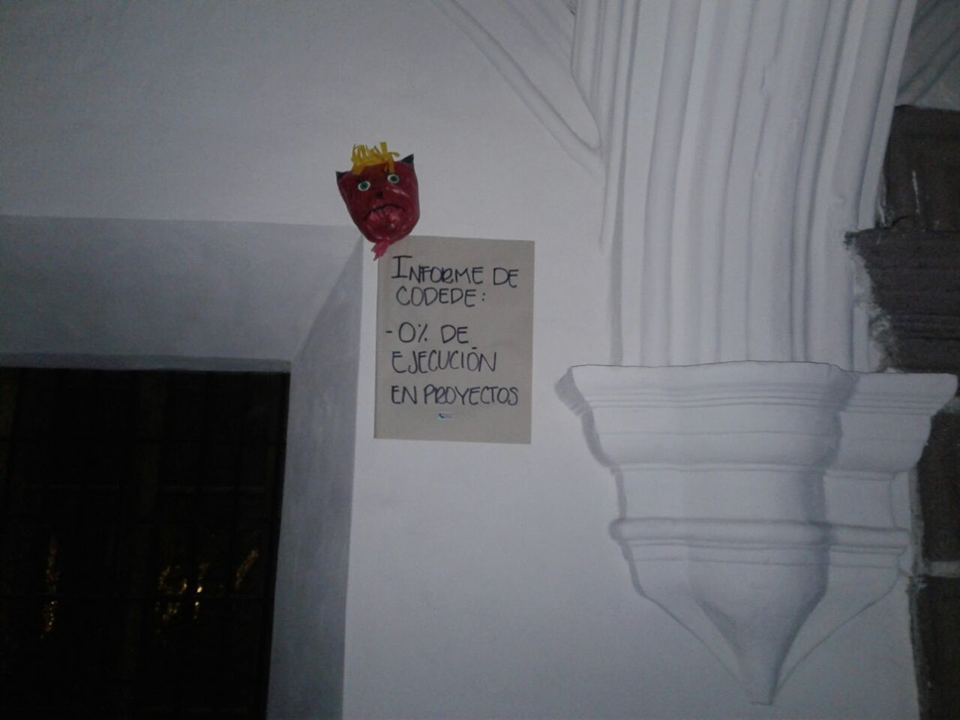 INFORME DE
CODEDE:
-0% DE
EJECUCIÓN
EN PROYECTOS